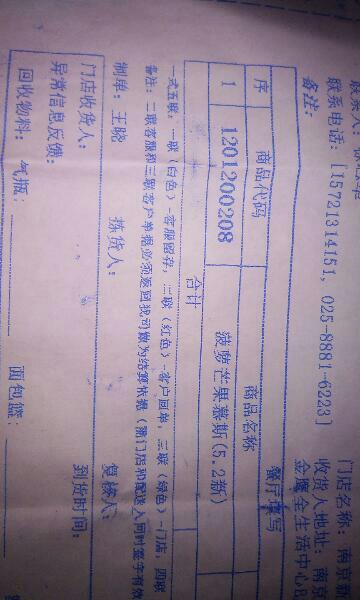 联系电话：[15721314151, 025-8881-6223]
备注：
门店名称：南京新
收货人地址：南京
金鹰金生活中心B
餐厅填写
序 商品代码 商品名称
1 1201200208 菠萝芒果慕斯(5.2新)
合计
一式五联：一联（白色）-客服留存，二联（红色）-客户回单，三联（绿色）-门店，四联
备注：二联客服和三联客户单据必须返回我司做为结算依据（需门店和配送人同时签字有效
制单：王晓 拣货人： 复核人：
门店收货人： 到货时间：
异常信息反馈：
回收物料： 气瓶： 面包篮：